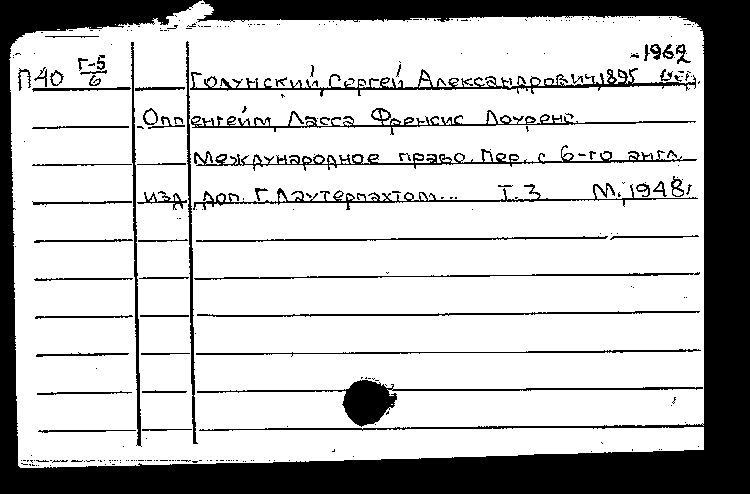 П40 Г-5/6 Голунский, Сергей Александрович, 1895-1962
Оппенгейм, Ласса Френсис Лоуренс.
Международное право. Пер. с 6-го англ.
изд., доп. Г. Лаутерпахтом... Т. 3. М., 1948.